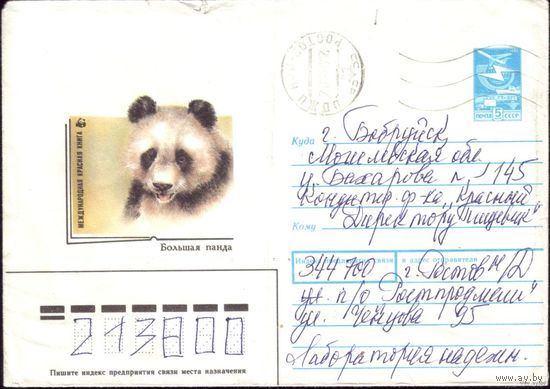 МЕЖДУНАРОДНАЯ КРАСНАЯ КНИГА
Большая панда
ПОЧТА 5 СССР
Куда г. Бобруйск,
Могилевская обл.
ул. Бахарова 145
Кондитер. ф-ка "Красный
Кому Директору пищевик"
Индекс предприятия связи и адрес отправителя
344700 г. Ростов н/Д
ул. п/о
ул. Ченцова 95
Лаборатория надежн.
213800
Пишите индекс предприятия связи места назначения
www.ay.by